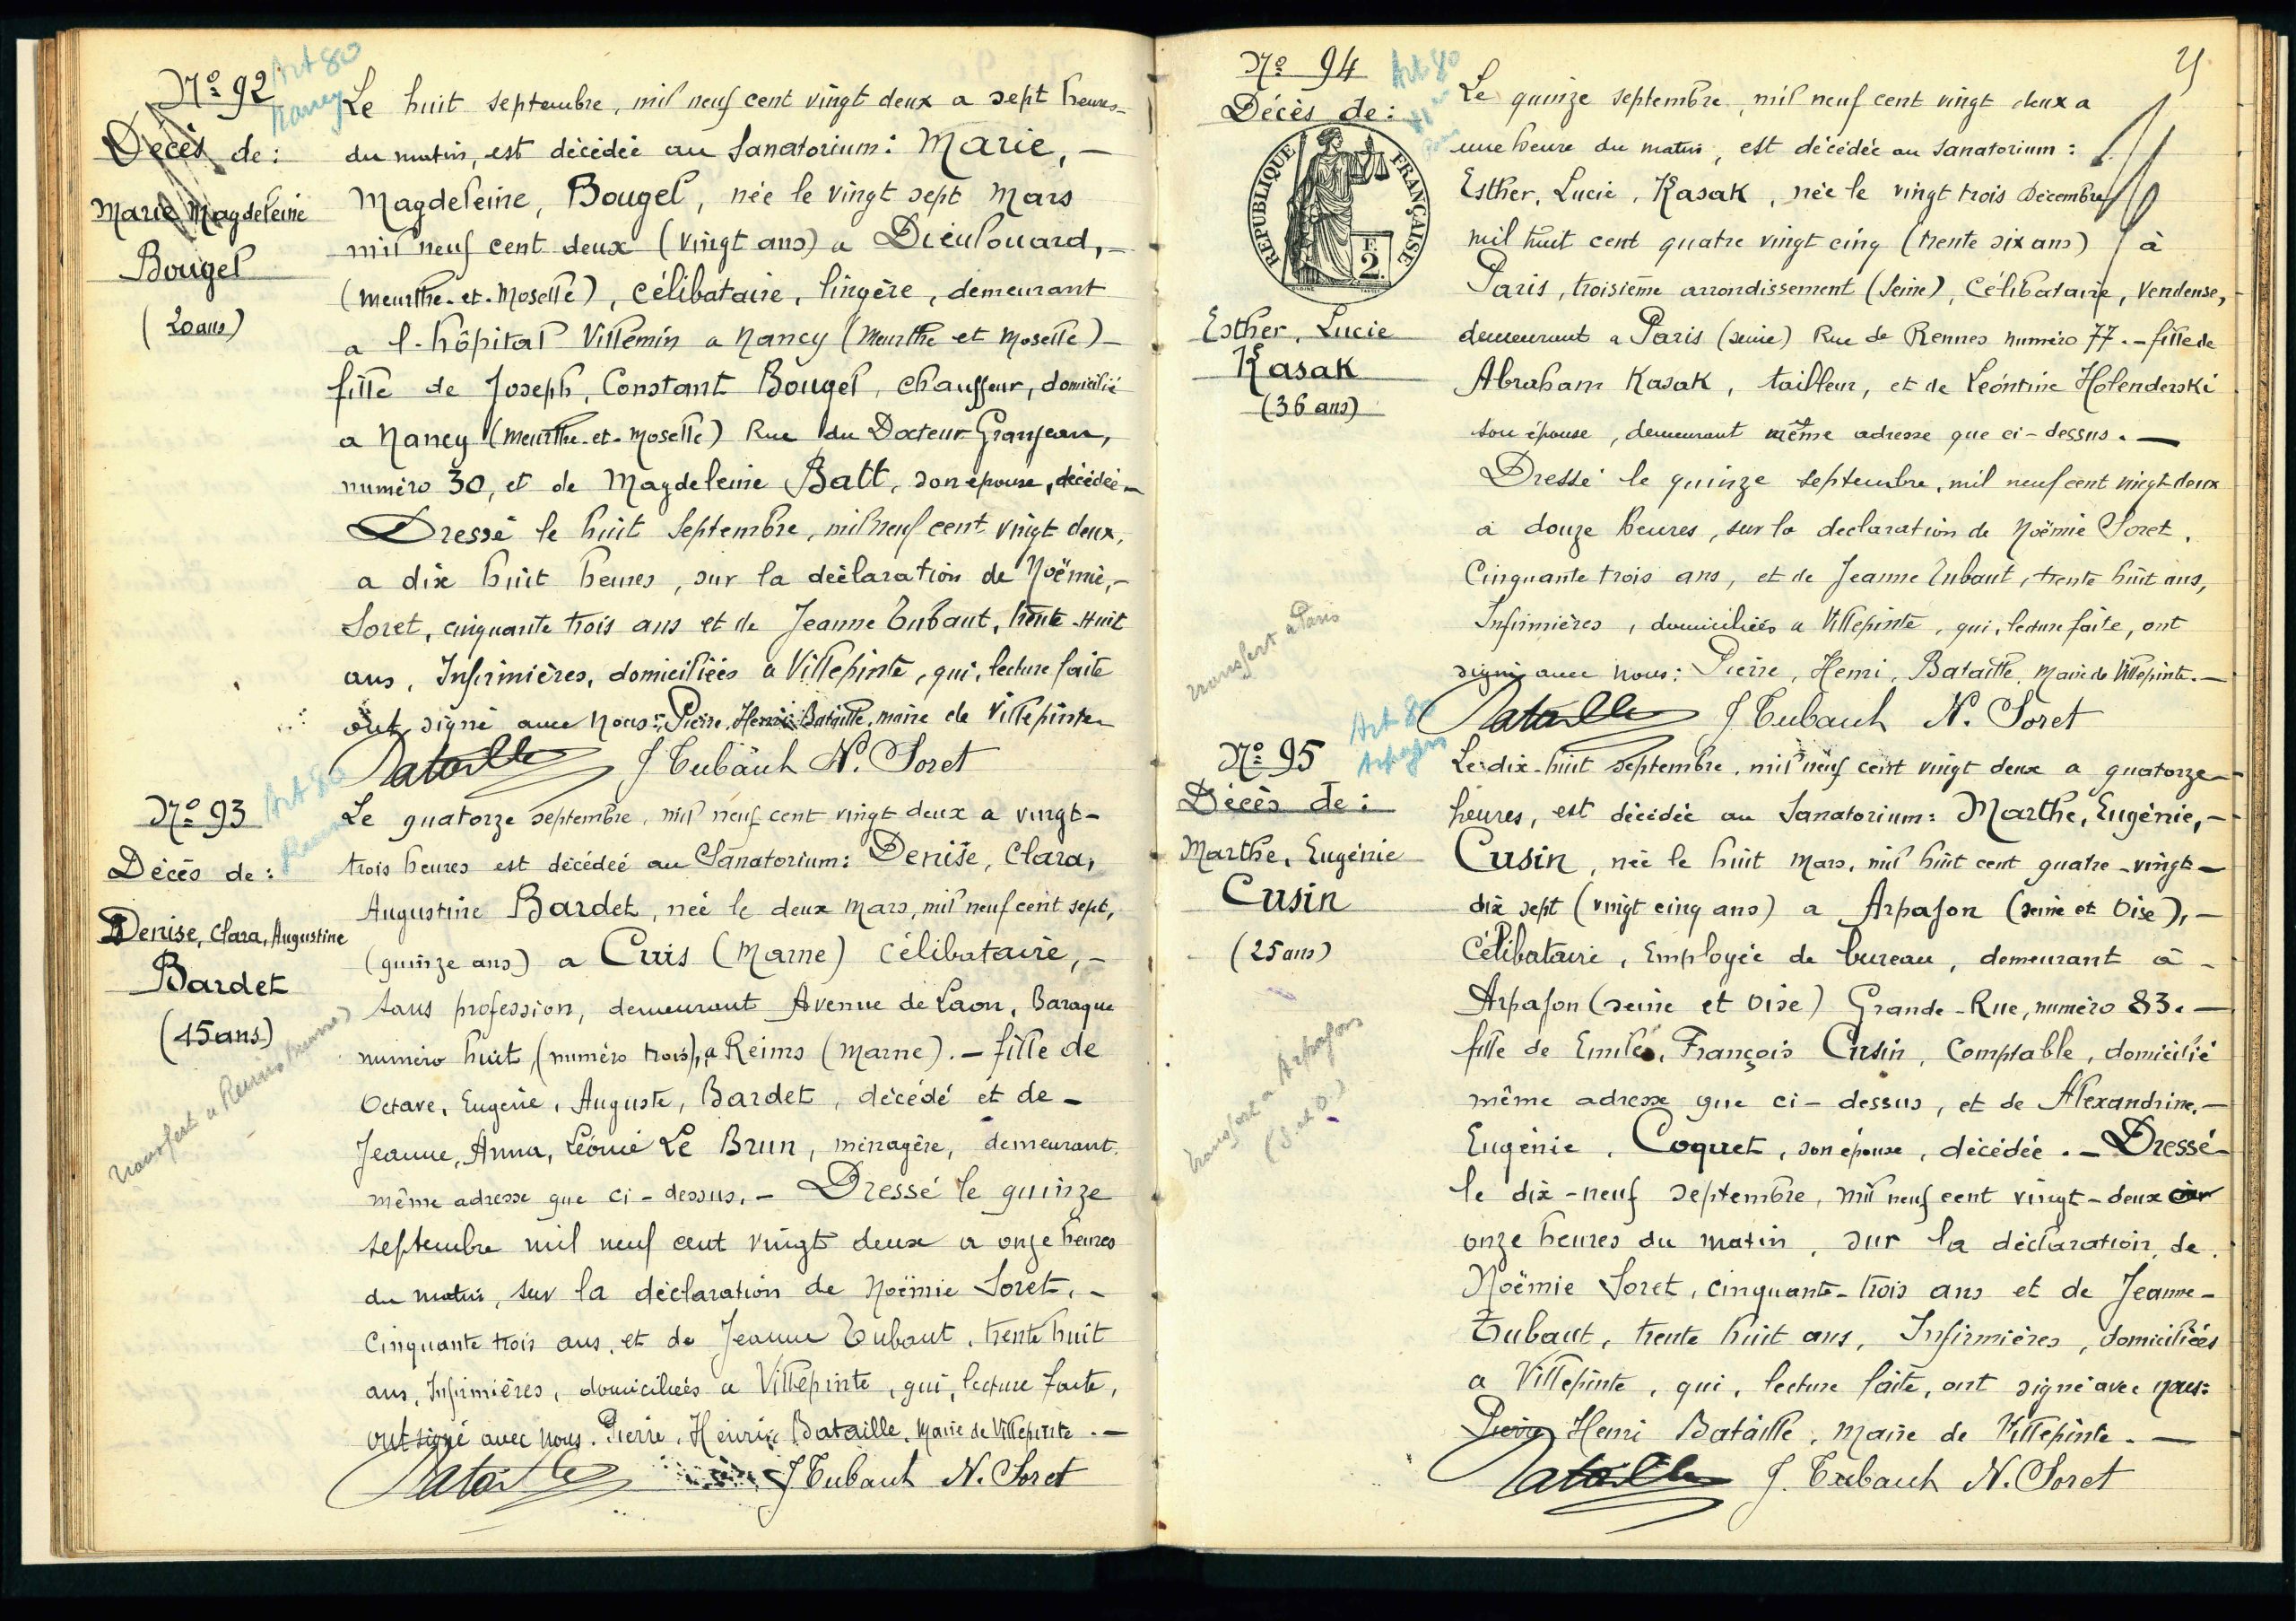 Nº 92
Art 80
Nancy
Décès de :
Marie Magdeleine
Bougel
(20 ans)
Le huit septembre, mil neuf cent vingt deux a sept heures-
du matin, est décédée au Sanatorium : Marie, —
Magdeleine, Bougel, née le vingt sept Mars
mil neuf cent deux (vingt ans) a Dieulouard, —
(Meurthe-et-Moselle), célibataire, lingère, demeurant
a l'hôpital Villemin a Nancy (Meurthe et Moselle) —
fille de Joseph, Constant Bougel, chauffeur, domicilié
a Nancy (Meurthe-et-Moselle) Rue du Docteur Granjean,
numéro 30, et de Magdeleine Batt, son épouse, décédée —
Dressé le huit Septembre, mil neuf cent vingt deux,
a dix huit heures, sur la déclaration de Noëmie, —
Soret, cinquante trois ans et de Jeanne Tubaut, trente-huit
ans, Infirmières, domiciliées a Villepinte, qui, lecture faite
ont signé avec Nous : Pierre, Henri Bataille, maire de Villepinte —
Bataille J Tubauh N. Soret
Nº 93
Art 80
Décès de :
Denise, Clara, Augustine
Bardet
(15 ans)
transfert a Reims (marne)
Le quatorze septembre, mil neuf cent vingt deux a vingt-
trois heures est décédée au Sanatorium : Denise, Clara,
Augustine Bardet, née le deux Mars, mil neuf cent sept,
(quinze ans) a Cuis (Marne) célibataire, —
sans profession, demeurant Avenue de Laon, Baraque
numéro huit, (numéro trois), a Reims (Marne). — fille de
Octave, Eugène, Auguste, Bardet, décédé et de —
Jeanne, Anna, Léonie Le Brun, ménagère, demeurant
même adresse que ci-dessus. — Dressé le quinze
septembre mil neuf cent vingt deux a onze heures
du matin, sur la déclaration de Noëmie Soret, —
Cinquante trois ans, et de Jeanne Tubaut, trente huit
ans, Infirmières, domiciliées a Villepinte, qui, lecture faite,
ont signé avec nous. Pierre, Henri Bataille, Maire de Villepinte. —
Bataille J Tubauh N. Soret
Nº 94
Art 80
Décès de :
RÉPUBLIQUE FRANÇAISE
F.
2
Esther, Lucie
Kasak
(36 ans)
transfert a Paris
Le quinze septembre, mil neuf cent vingt deux a
une heure du matin, est décédée au Sanatorium :
Esther, Lucie, Kasak, née le vingt trois Décembre
mil huit cent quatre vingt cinq (trente six ans) à
Paris, troisième arrondissement (Seine), Célibataire, Vendeuse,
demeurant a Paris (seine) Rue de Rennes numéro 77. — fille de
Abraham Kasak, tailleur, et de Léontine Holenderski
son épouse, demeurant même adresse que ci-dessus. —
Dressé le quinze septembre, mil neuf cent vingt-deux
a douze heures, sur la déclaration de Noëmie Soret,
Cinquante trois ans, et de Jeanne Tubaut, trente huit ans,
Infirmières, domiciliées a Villepinte, qui, lecture faite, ont
signé avec nous : Pierre, Henri, Bataille, Maire de Villepinte. —
Bataille J Tubauh N. Soret
Nº 95
Art 80
Arpajon
Décès de :
Marthe, Eugénie
Cusin
(25 ans)
transfert a Arpajon
(S. et O.)
Le dix-huit septembre, mil neuf cent vingt deux a quatorze —
heures, est décédée au Sanatorium : Marthe, Eugénie, —
Cusin, née le huit Mars, mil huit cent quatre-vingt-
dix sept (vingt cinq ans) a Arpajon (seine et Oise), —
Célibataire, Employée de bureau, demeurant à —
Arpajon (seine et Oise) Grande-Rue, numéro 83. —
fille de Emile, François Cusin, Comptable, domicilié
même adresse que ci-dessus, et de Alexandrine, —
Eugénie, Coquet, son épouse, décédée. — Dressé
le dix-neuf septembre, mil neuf cent vingt-deux
onze heures du matin, sur la déclaration de
Noëmie Soret, cinquante-trois ans et de Jeanne —
Tubaut, trente huit ans, Infirmières, domiciliées
a Villepinte, qui, lecture faite, ont signé avec nous :
Pierre Henri Bataille, Maire de Villepinte. —
Bataille J. Tubauh N. Soret